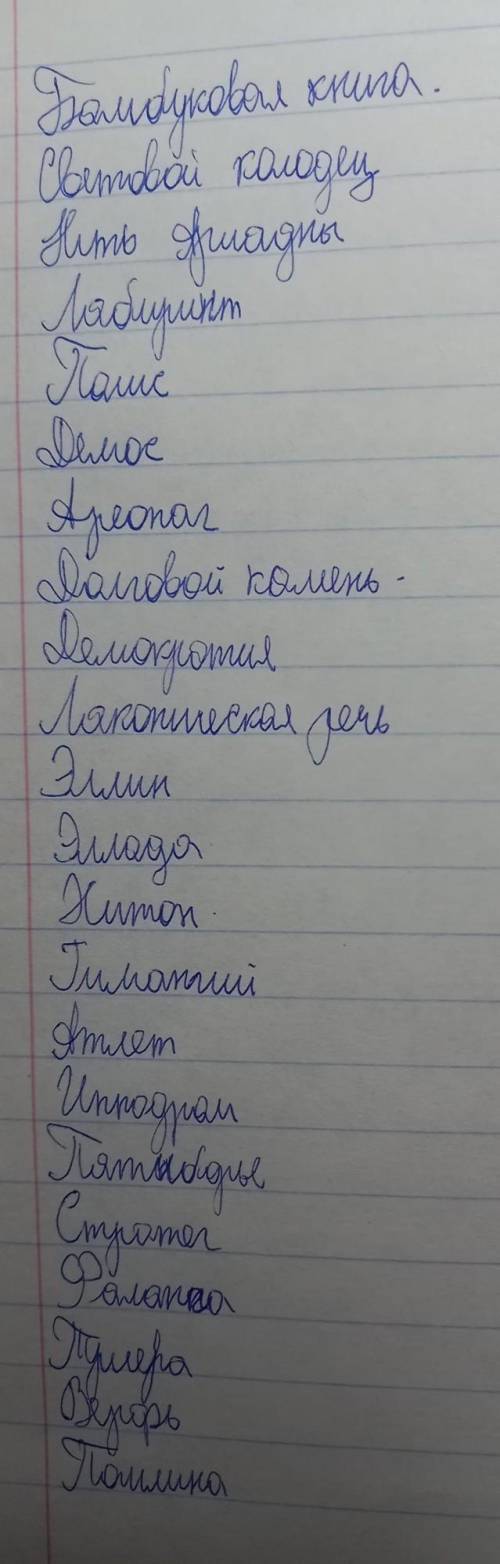 Бамбуковая книга.
Световой колодец
Нить Ариадны
Лабиринт
Полис
Демос
Ареопаг
Долговой камень -
Демократия
Лаконическая речь
Эллин
Эллада
Хитон
Гиматий
Атлет
Ипподром
Пятиборье
Стратег
Фаланга
Триера